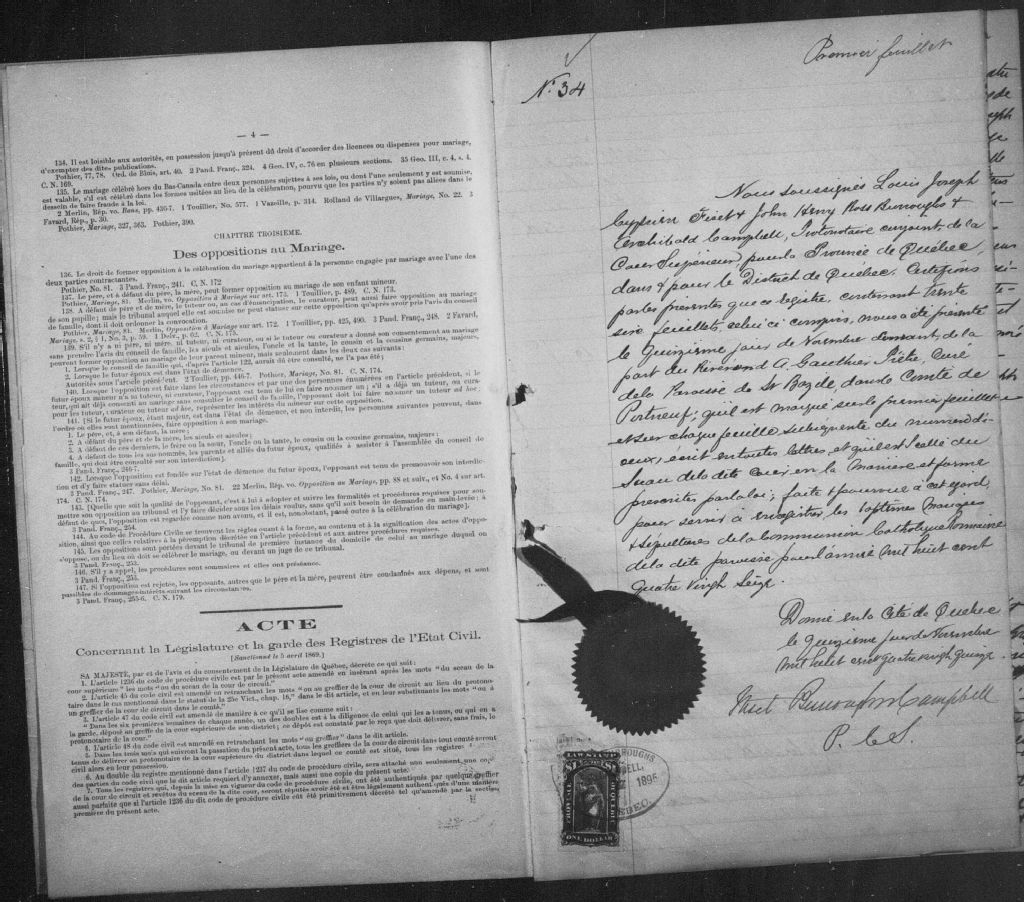 — 4 —
134. Il est loisible aux autorités, en possession jusqu'à présent du droit d'accorder des licences ou dispenses pour mariage,
d'exempter des dites publications.
Pothier, 77, 78. Ord. de Blois, art. 40. 2 Pand. Franç., 324. 4 Geo. IV, c. 76 en plusieurs sections. 35 Geo. III, c. 4, s. 4.
C. N. 169.
135. Le mariage célébré hors du Bas-Canada entre deux personnes sujettes à ses lois, ou dont l'une seulement y est soumise,
est valable, s'il est célébré dans les formes usitées au lieu de la célébration, pourvu que les parties n'y soient pas allées dans le
dessein de faire fraude à la loi.
2 Merlin, Rép. vo. Bans, pp. 436-7. 1 Touillier, No. 577. 1 Vazeille, p. 314. Rolland de Villargues, Mariage, No. 22. 3
Favard, Rép., p. 30.
Pothier, Mariage, 327, 363. Pothier, 390.
CHAPITRE TROISIÈME.
Des oppositions au Mariage.
136. Le droit de former opposition à la célébration du mariage appartient à la personne engagée par mariage avec l'une des
deux parties contractantes.
Pothier, No. 81. 3 Pand. Franç., 241. C. N. 172
137. Le père, et à défaut du père, la mère, peut former opposition au mariage de son enfant mineur.
Pothier, Mariage, 81. Merlin, vo. Opposition à Mariage sur art. 173. 1 Touillier, p. 489. C. N. 173.
138. A défaut de père et de mère, le tuteur, ou, au cas d'émancipation, le curateur, peut aussi faire opposition au mariage
de son pupille; mais le tribunal auquel elle est soumise ne peut statuer sur cette opposition qu'après avoir pris l'avis du conseil
de famille, dont il doit ordonner la convocation.
Pothier, Mariage, 81. Merlin, Opposition à Mariage sur art. 172. 1 Touillier, pp. 425, 490. 3 Pand. Franç., 248. 2 Favard,
Mariage, s. 2, § 1, No. 3, p. 59. 1 Delv., p. 62. C. N. 175.
139. S'il n'y a ni père, ni mère, ni tuteur, ni curateur, ou si le tuteur ou curateur a donné son consentement au mariage
sans prendre l'avis du conseil de famille, les aïeuls et aïeules, l'oncle et la tante, le cousin et la cousine germains, majeurs,
peuvent former opposition au mariage de leur parent mineur, mais seulement dans les deux cas suivants:
1. Lorsque le conseil de famille qui, d'après l'article 122, aurait dû être consulté, ne l'a pas été;
2. Lorsque le futur époux est dans l'état de démence.
Autorités sous l'article précédent. 2 Touillier, pp. 446-7. Pothier, Mariage, No. 81. C. N. 174.
140. Lorsque l'opposition est faite dans les circonstances et par une des personnes énumérées en l'article précédent, si le
futur époux mineur n'a ni tuteur, ni curateur, l'opposant est tenu de lui en faire nommer un; s'il a déjà un tuteur, ou cura-
teur, qui ait déjà consenti au mariage sans consulter le conseil de famille, l'opposant doit lui faire nommer un tuteur ad hoc;
pour les tuteur, curateur ou tuteur ad hoc, représenter les intérêts du mineur sur cette opposition.
141. [Si le futur époux, étant majeur, est dans l'état de démence, et non interdit, les personnes suivantes peuvent, dans
l'ordre où elles sont mentionnées, faire opposition à son mariage.
1. Le père, et, à son défaut, la mère;
2. A défaut du père et de la mère, les aïeuls et aïeules;
3. A défaut de ces derniers, le frère ou la sœur, l'oncle ou la tante, le cousin ou la cousine germains, majeurs;
4. A défaut de tous les sus-nommés, les parents et alliés du futur époux, qualifiés à assister à l'assemblée du conseil de
famille, qui doit être consulté sur son interdiction].
3 Pand. Franç., 246-7.
142. Lorsque l'opposition est fondée sur l'état de démence du futur époux, l'opposant est tenu de promouvoir son interdic-
tion et d'y faire statuer sans délai.
3 Pand. Franç., 247. Pothier, Mariage, No. 81. 22 Merlin, Rép. vo. Opposition au Mariage, pp 88 et suiv., et No. 4 sur art.
174. C. N. 174.
143. [Quelle que soit la qualité de l'opposant, c'est à lui à adopter et suivre les formalités et procédures requises pour sou-
mettre son opposition au tribunal et l'y faire décider sous les délais voulus, sans qu'il soit besoin de demande en main-levée; à
défaut de quoi, l'opposition est regardée comme non avenue, et il est, nonobstant, passé outre à la célébration du mariage].
3 Pand. Franç., 254.
144. Au code de Procédure Civile se trouvent les règles quant à la forme, au contenu et à la signification des actes d'oppo-
sition, ainsi que celles relatives à la péremption décrétée en l'article précédent et aux autres procédures requises.
145. Les oppositions sont portées devant le tribunal de première instance du domicile de celui au mariage duquel on
s'oppose, ou du lieu où doit se célébrer le mariage, ou devant un juge de ce tribunal.
3 Pand. Franç., 253.
146. S'il y a appel, les procédures sont sommaires et elles ont préséance.
3 Pand. Franç., 255.
147. Si l'opposition est rejetée, les opposants, autres que le père et la mère, peuvent être condamnés aux dépens, et sont
passibles de dommages-intérêts suivant les circonstances.
3 Pand. Franç., 255-6. C. N. 179.
ACTE
Concernant la Législature et la garde des Registres de l'Etat Civil.
[Sanctionné le 5 avril 1869.]
SA MAJESTE, par et de l'avis et du consentement de la Législature de Québec, décrète ce qui suit:
1. L'article 1236 du code de procédure civile est par le présent acte amendé en insérant après les mots "du sceau de la
cour supérieure" les mots "ou au sceau de la cour de circuit."
2. L'article 45 du code civil est amendé en retranchant les mots "ou au greffier de la cour de circuit au lieu du protono-
taire dans le cas mentionné dans le statut de la 25e Vict., chap. 16," dans le dit article, et en leur substituant les mots "ou à
un greffier de la cour de circuit dans le comté."
3. L'article 47 du code civil est amendé de manière à ce qu'il se lise comme suit:
"Dans les six premières semaines de chaque année, un des doubles est à la diligence de celui qui les a tenus, ou qui en a
la garde, déposé au greffe de la cour supérieure de son district; ce dépôt est constaté par le reçu que doit délivrer, sans frais, le
protonotaire de la cour."
4. L'article 48 du code civil est amendé en retranchant les mots "ou greffier" dans le dit article.
5. Dans les trois mois qui suivront la passation du présent acte, tous les greffiers de la cour de circuit dans tout comté seront
tenus de délivrer au protonotaire de la cour supérieure du district dans lequel ce comté est situé, tous les registres
civil alors en leur possession.
6. Au double du registre mentionné dans l'article 1237 du code de procédure civile, sera attaché non seulement une copie
des parties du code civil que le dit article requiert d'y annexer, mais aussi une copie du présent acte.
7. Tous les registres qui, depuis la mise en vigueur du code de procédure civile, ont été authentiqués par quelque greffier
de la cour de circuit et revêtus du sceau de la dite cour, seront réputés avoir été et être légalement authentiqués d'une manière
aussi parfaite que si l'article 1236 du dit code de procédure civile eût été primitivement décrété tel qu'amendé par la section
première du présent acte.
Premier feuillet
No. 34
Nous soussignés Louis Joseph
Cyprien Fiset & John Henry Ross Burroughs &
Archibald Campbell, Protonotaire conjoint de la
Cour Supérieure pour la Province de Québec,
dans & pour le District de Québec, Certifions
par les présentes que ce registre, contenant trente
seize feuillets, celui ci compris, nous a été présenté
le Quinzième jour de Novembre dernant, de la
part du Révérend A. Gauthier Ptre, Curé
de la Paroisse de St Bazile dans le Comté de
Portneuf; qu'il est marqué sur le premier feuillet
et sur chaque feuille subséquente du numéro di-
ceux, écrit en toutes lettres, et qu'il est scellé du
Sceau de la dite Cour en la manière et forme
prescrites par la loi; faite & pourvue à cet égard,
pour servir à enregistrer les baptêmes mariages
& sépultures de la Communion Catholique Romaine
de la dite paroisse pour l'année mil huit cent
Quatre Vingt Seize.
Donné en la Cité de Québec
le Quinzième jour de Novembre
mil huit cent quatre vingt quinze
Fiset Burroughs & Campbell
P. C. S.
BURROUGHS
1895
LAW STAMP
PROVINCE
QUEBEC
ONE DOLLAR